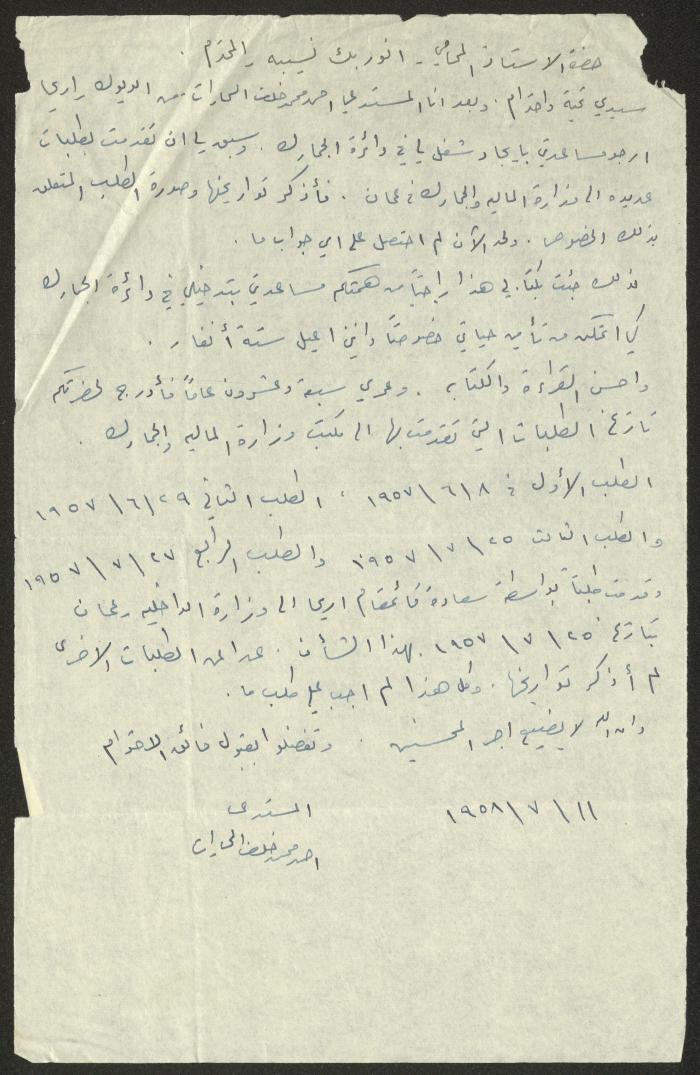 حضرة الاستاذ المحامي - انور بك نسيبه المحترم .
سيدي تحية واحترام . وبعد انا المستدعي احمد محمد خلف من الديوك اريحا
ارجو مساعدتي بايجاد شغل لي في دائرة الجمارك . وسبق لي ان تقدمت بطلبات
عديده الى وزارة الماليه والجمارك في عمان . فأذكر تواريخها وصورة الطلب المتعلق
بذلك الخصوص . ولحد الآن لم احتصل على اي جواب ما .
لذلك جئت بكتابي هذا راجياً من همتكم مساعدتي بتدخيلي في دائرة الجمارك
كي اتمكن من تأمين حياتي خصوصاً وانني اعيل ستة أنفار .
واحسن القراءة والكتابه . وعمري سبعة وعشرون عاماً فأدرج لحضرتكم
تاريخ الطلبات التي تقدمت بها الى مكتب وزارة الماليه والجمارك .
الطلب الأول في ٨ \ ٦ \ ١٩٥٧ ، الطلب الثاني ٢٩ \ ٦ \ ١٩٥٧
والطلب الثالث ٢٥ \ ٧ \ ١٩٥٧ والطلب الرابع ٢٧ \ ٧ \ ١٩٥٧
وقدمت طلباً بواسطة سعادة قائمقام اريحا الى وزارة الداخليه عمان
بتاريخ ٢٥ \ ٧ \ ١٩٥٧ بهذا الشأن . عدا عن الطلبات الاخرى
لم أذكر تواريخها . وكل هذا لم اجب على طلب ما .
وان الله لا يضيع اجر المحسنين . وتفضلوا بقبول فائق الاحترام
١١ \ ٧ \ ١٩٥٨ المستدعي
احمد محمد خلف